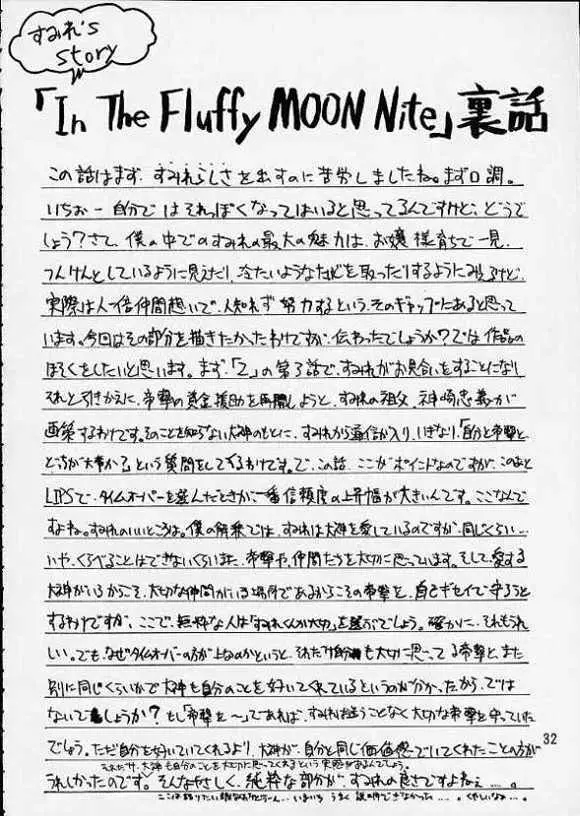 すみれ's
Story
「In The Fluffy MOON Nite」裏話
この話はまず、すみれらしさを出すのに苦労しましたね。まず口調。
いちおー自分ではそれっぽくなってはいると思ってるんですけど、どうで
しょう?さて、僕の中でのすみれの最大の魅力は、お嬢様育ちで一見、
つんけんとしているように見えたり、冷たいような態度を取ったりするようにみえるけど、
実際は人一倍仲間想いで、人知れず努力するという、そのギャップにあると思って
います。今回はその部分を描きたかったわけですが、伝わったでしょうか?では作品の
ほそくをしたいと思います。まず「2」の第3話で、すみれがお見合いをすることになり
それと引きかえに、帝撃の資金援助を再開しようと、すみれの祖父、神崎忠義が
画策するわけです。そのことを知らない大神のもとに、すみれから通信が入り、いきなり、「自分と帝撃と
どっちが大事か?」という質問をしてくるわけです。で、この話、ここがポイントなのですが、このあと
LIPSで、タイムオーバーを選んだときが一番信頼度の上昇幅が大きいんです。ここなんで
すよね。すみれのいいところは。僕の解釈では、すみれは大神を愛しているのですが、同じくらい…
いや、くらべることはできないくらいに、帝撃や、仲間たちを大切に思っています。そして、愛する
大神がいるからこそ、大切な仲間がいる場所であるからこその帝撃を、自己ギセイで守ろうと
するわけですが、ここで、無粋な人は「すみれくんが大切」を選ぶでしょう。確かに、それもうれ
しい。でも、なぜタイムオーバーの方が上なのかというと、それだけ自分も大切に思ってる帝撃と、また
別に同じくらいかで大神も自分のことを好いてくれているというのが分かったから、では
ないでしょうか?もし「帝撃を〜」であれば、すみれは迷うことなく大切な帝撃を守っていた
でしょう。ただ自分を好いていてくれるより、大神が、自分と同じ価値感でいてくれたことの方が
それだけ、大神も自分のことを大切に思ってくれるという実感があるんでしょう。
うれしかったのです。そんなやさしく、純粋な部分が、すみれの良さですよねぇ…。
いまいち うまく 説明ができなかった…。くやしいなぁ…。
32